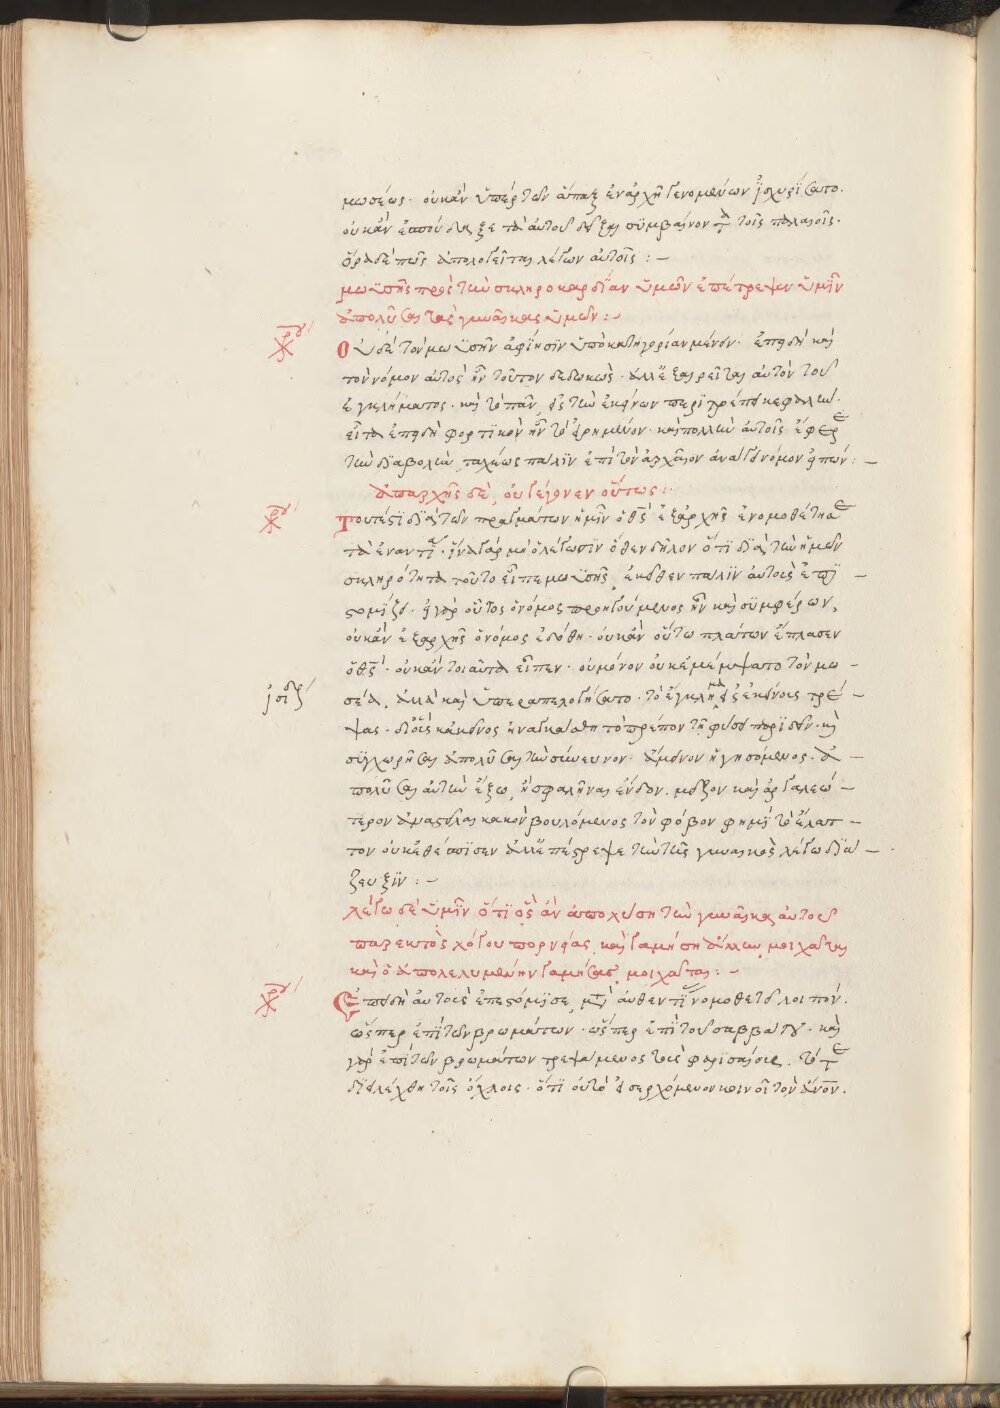 μωσέως· οὐκ ἂν ὑπὲρ τῶν ἅπαξ ἐν ἀρχῇ γενομένων ἰσχυρίσατο·
οὐκ ἂν ἐσπούδαξε τὰ αὐτοῦ δεῖξαι συμβαῖνοντα τοῖς παλαιοῖς·
ὅρα δὲ πῶς ἀπολογεῖται λέγων αὐτοῖς :–
μωϋσῆς πρὸς τὴν σκληροκαρδίαν ὑμῶν ἐπέτρεψεν ὑμῖν
ἀπολῦσαι τὰς γυναῖκας ὑμῶν :–
χρυ
Οὐδὲ τὸν μωϋσὴν ἀφίησιν ὑπὸ κατηγορίαν μένειν· ἐπειδὴ καὶ
τὸν νόμον αὐτὸς ἦν τοῦτον δεδωκὼς· ἀλλ' ἐξαιρεῖται αὐτὸν τοῦ
ἐγκλήματος· καὶ τὸ πᾶν εἰς τὴν ἐκείνων περιτρέπει κεφαλήν·
εἶτα ἐπειδὴ φορτικὸν ἦν τὸ εἰρημένον· καὶ πολλὴν αὐτοῖς ἔφερε
τὴν διαβολὴν, ταχέως πάλιν ἐπὶ τὸν ἀρχαῖον ἀνάγει νόμον εἰπών :–
ἀπαρχῆς δὲ, οὐ γέγονεν οὕτως :
χρυ
Τουτέστι διὰ τῶν πραγμάτων ἡμῖν ὁ θς ἐξαρχῆς ἐνομοθέτησε
τὰ ἐναντία· ἵνα γὰρ μὴ λέγωσιν ὅθεν δῆλον ὅτι διὰ τὴν ἡμῶν
σκληρότητα τοῦτο εἶπε μωϋσῆς, ἐκεῖθεν πάλιν αὐτοὺς ἐπι–
στομίζει· εἰ γὰρ οὗτος ὁ νόμος προηγούμενος ἦν καὶ συμφέρων,
οὐκ ἂν ἐξαρχῆς ὁ νόμος ἐδόθη· οὐκ ἂν οὕτω πλάττων ἔπλασεν
ὁ θς· οὐκ ἂν τοιαῦτα εἶπεν· οὐ μόνον οὐκ ἐμέμψατο τὸν μω–
ἰσιδρ
σέα, ἀλλὰ καὶ ὑπεραπελογήσατο· τὸ ἔγκλημα εἰς ἐκείνους τρέ–
ψας· δι' οὓς κἀκεῖνος ἠναγκάσθη τὸ πρέπον τῇ φύσει παριδεῖν· καὶ
συγχωρῆσαι ἀπολῦσαι τὴν σύνευνον· ἄμεινον ἡγησόμενος· ἀ–
πολῦσαι αὐτὴν ἔξω, ἢ σφαγῆναι ἔνδον. μεῖζον καὶ ἀργαλεώ–
τερον κακὸν βουλόμενος τὸν φόβον φημὶ τὸ ἔλαττ–
τον οὐκ ἐθέσπισεν ἀλλ' ἐπέτρεψε τὴν τῆς γυναικὸς λέγω διά–
ζευξιν :–
λέγω δὲ ὑμῖν ὅτι ὃς ἂν ἀπολύσῃ τὴν γυναῖκα αὐτοῦ
παρεκτὸς λόγου πορνείας, καὶ γαμήσῃ ἄλλην, μοιχᾶται
καὶ ὁ ἀπολελυμένην γαμήσας, μοιχᾶται :–
χρυ
Ἐπειδὴ αὐτοὺς ἐπεστόμισε, μετὰ αὐθεντίας νομοθετεῖ λοιπόν.
ὥσπερ ἐπὶ τῶν βρωμάτων· ὥσπερ ἐπὶ τοῦ σαββάτου· καὶ
γὰρ ἐπὶ τῶν βρωμάτων τρεψάμενος τοὺς φαρισαίους. τότε
διελέχθη τοῖς ὄχλοις· ὅτι οὐ τὸ εἰσερχόμενον κοινοῖ τὸν ἄνον.